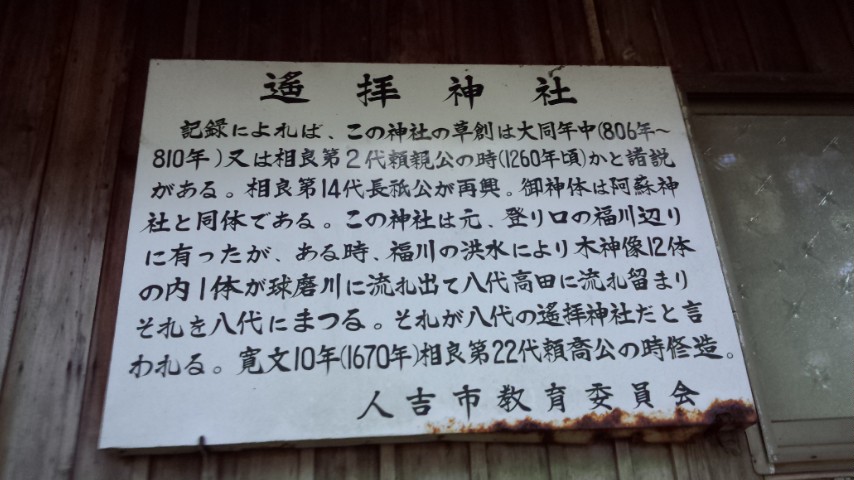 遙拝神社
記録によれば、この神社の草創は大同年中(806年～
810年)又は相良第2代頼親公の時(1260年頃)かと諸説
がある。相良第14代長祗公が再興。御神体は阿蘇神
社と同体である。この神社は元、登り口の福川辺り
に有ったが、ある時、福川の洪水により木神像12体
の内1体が球磨川に流れ出て八代高田に流れ留まり
それを八代にまつる。それが八代の遙拝神社だと言
われる。寛文10年(1670年)相良第22代頼喬公の時修造。
人吉市教育委員会